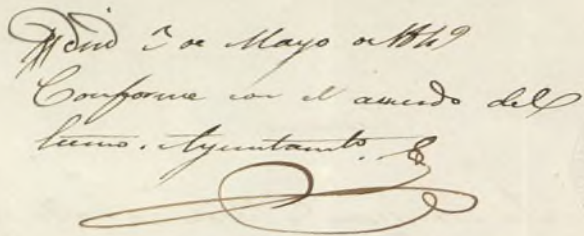 Madrid 3 de Mayo de 1849
Conforme con el acuerdo del
Excmo. Ayuntamto.